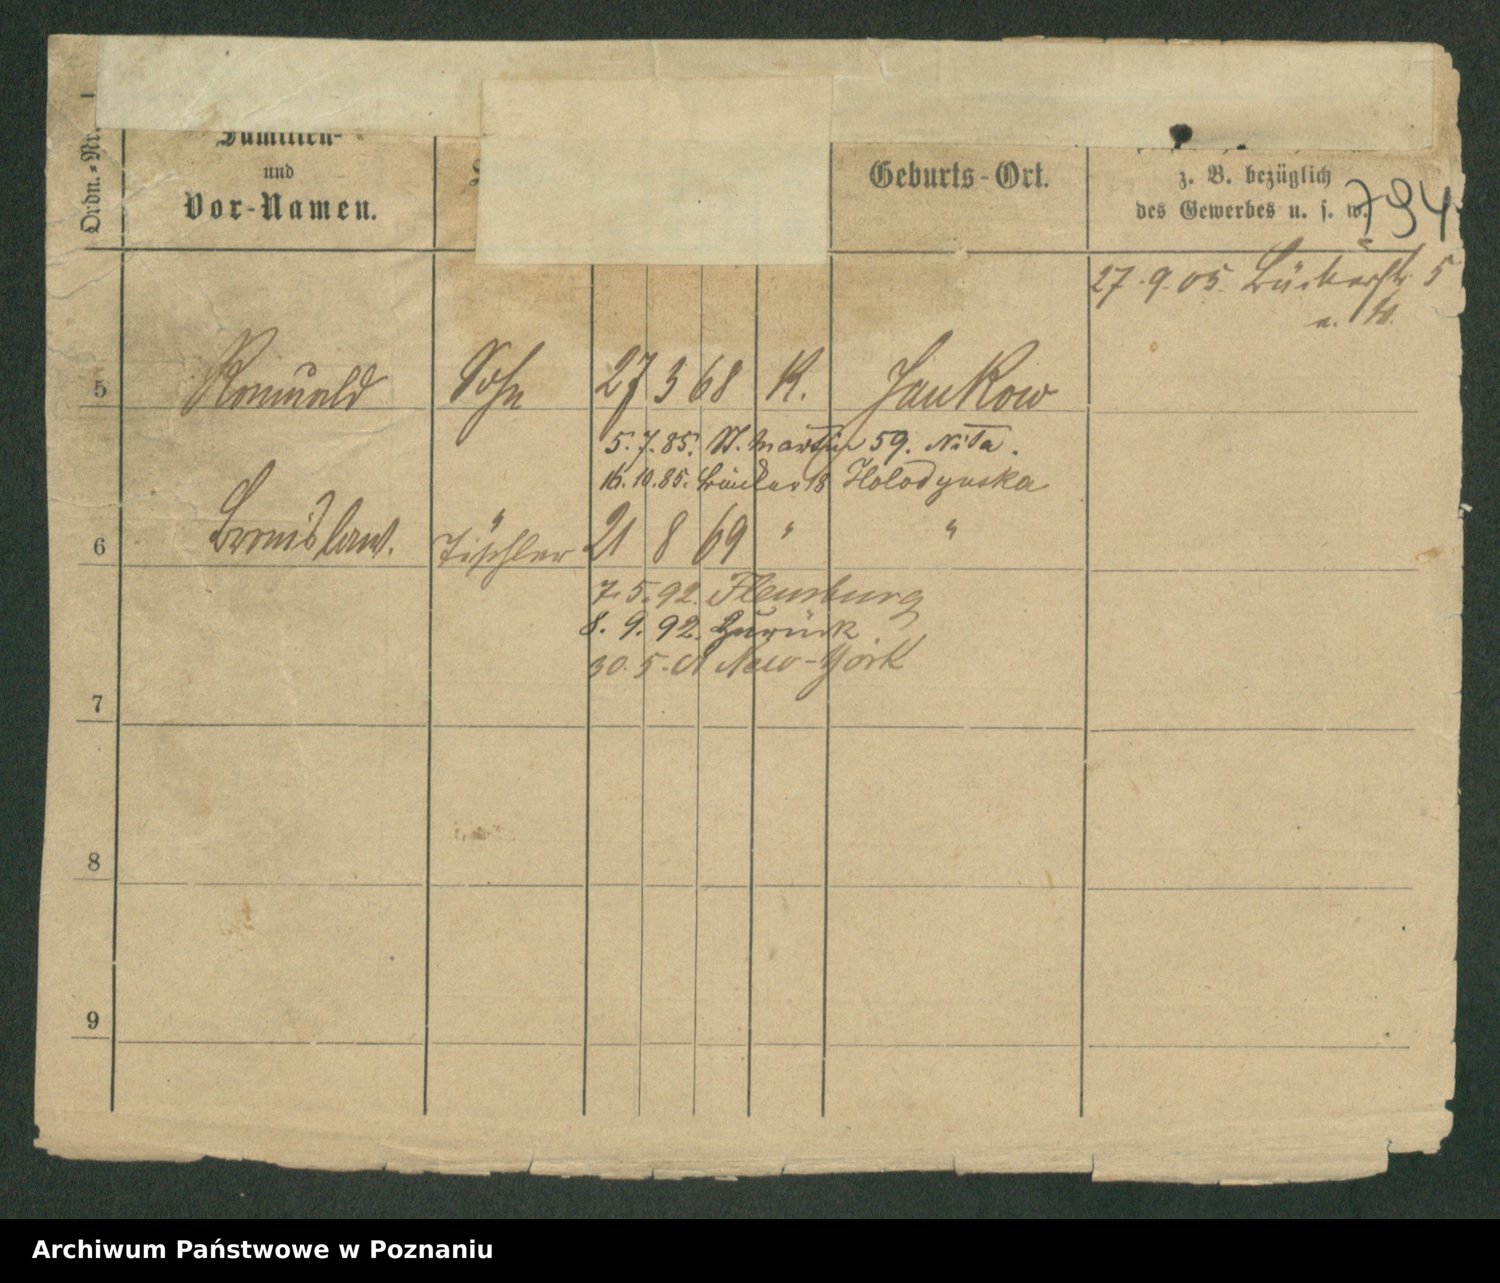 Ordn.-Nr.
Familien-
und
Vor-Namen.
Geburts-Ort.
z. B. bezüglich
des Gewerbes u. s. w.
794
27.9.05 5
5 Romuald Sohn 27 3 68 K. Jankow
5.7.85. St. Martin 59.
16.10.85. 18 Holodynska
6 Bronislaw. " Tischler 21 8 69 " "
7.5.92. Flensburg
8.9.92. Zurück
30.5.01 New-York
7
8
9
Archiwum Państwowe w Poznaniu